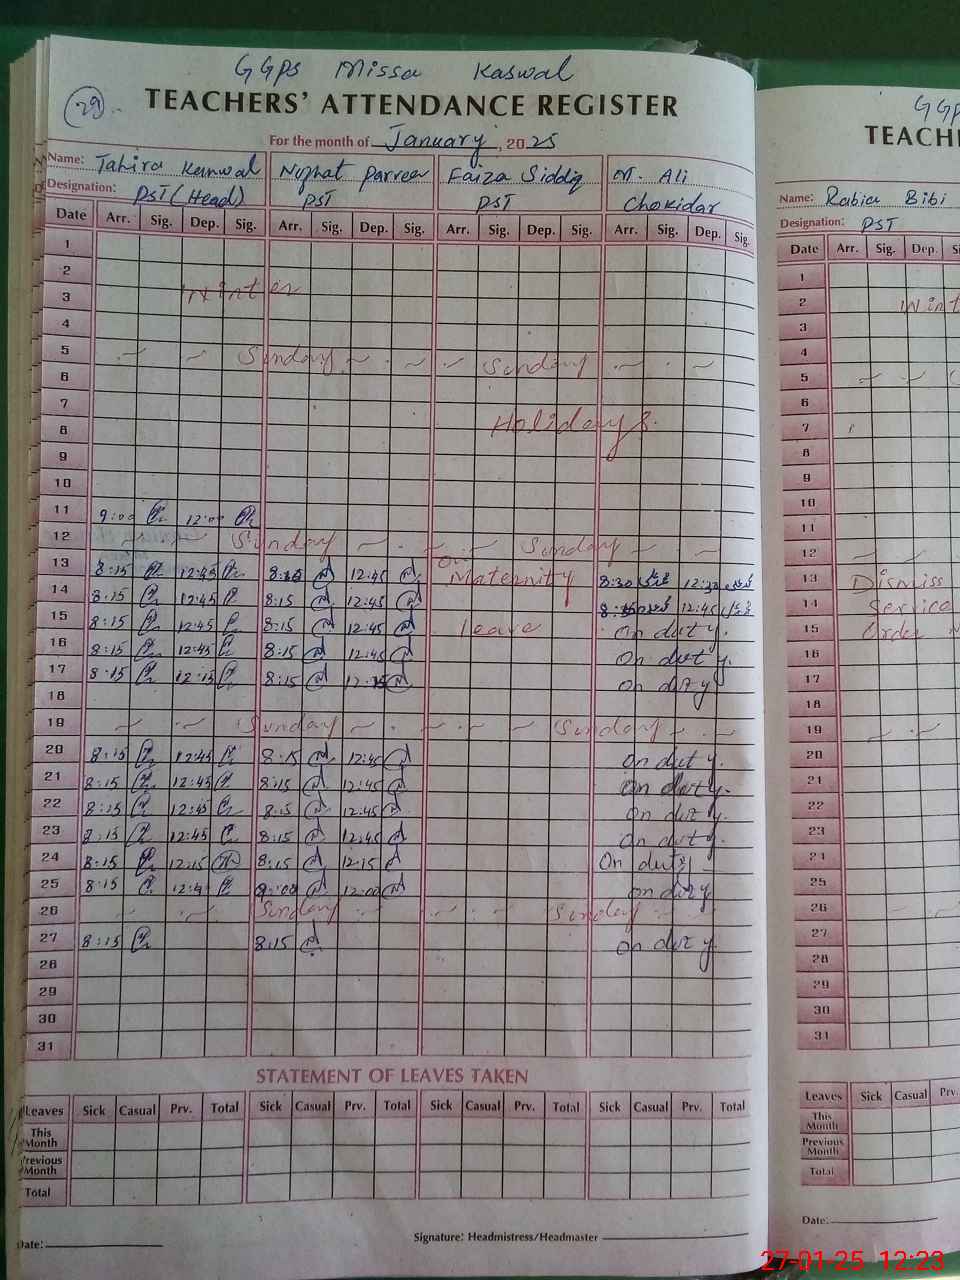 GGPS Missa Kaswal
29
TEACHERS' ATTENDANCE REGISTER
For the month of January, 2025
Name: Tahira Kanwal Nuzhat Parveen Faiza Siddiq M. Ali
Designation: PST (Head) PST PST Chokidar
Date Arr. Sig. Dep. Sig. Arr. Sig. Dep. Sig. Arr. Sig. Dep. Sig. Arr. Sig. Dep. Sig.
1
2
3 Winter
4
5 Sunday Sunday
6
7
8 Holidays.
9
10
11 9:00 12:00
12 Sunday Sunday
13 8:15 12:45 8:15 12:45 On Maternity 8:30 12:30
14 8:15 12:45 8:15 12:45 12:45
15 8:15 12:45 8:15 12:45 leave On duty.
16 8:15 12:45 8:15 12:45 On duty.
17 8:15 12:15 8:15 12:15 On duty
18
19 Sunday Sunday
20 8:15 12:45 8:15 12:45 On duty.
21 8:15 12:45 8:15 12:45 On duty.
22 8:15 12:45 8:15 12:45 On duty.
23 8:15 12:45 8:15 12:45 On duty.
24 8:15 12:15 8:15 12:15 On duty
25 8:15 9:00 12:00 On duty
26 Sunday Sunday
27 8:15 8:15 On duty.
28
29
30
31
STATEMENT OF LEAVES TAKEN
Leaves Sick Casual Prv. Total Sick Casual Prv. Total Sick Casual Prv. Total Sick Casual Prv. Total
This Month
Previous Month
Total
Date:
Signature: Headmistress/Headmaster
GGP
TEACH
Name: Rabia Bibi
Designation: PST
Date Arr. Sig. Dep. Si
1
2 Wint
3
4
5
6
7
8
9
10
11
12
13 Dismiss
14 Service
15 Order
16
17
18
19
20
21
22
23
24
25
26
27
28
29
30
31
Leaves Sick Casual Prv.
This Month
Previous Month
Total
Date:
27-01-25 12:23